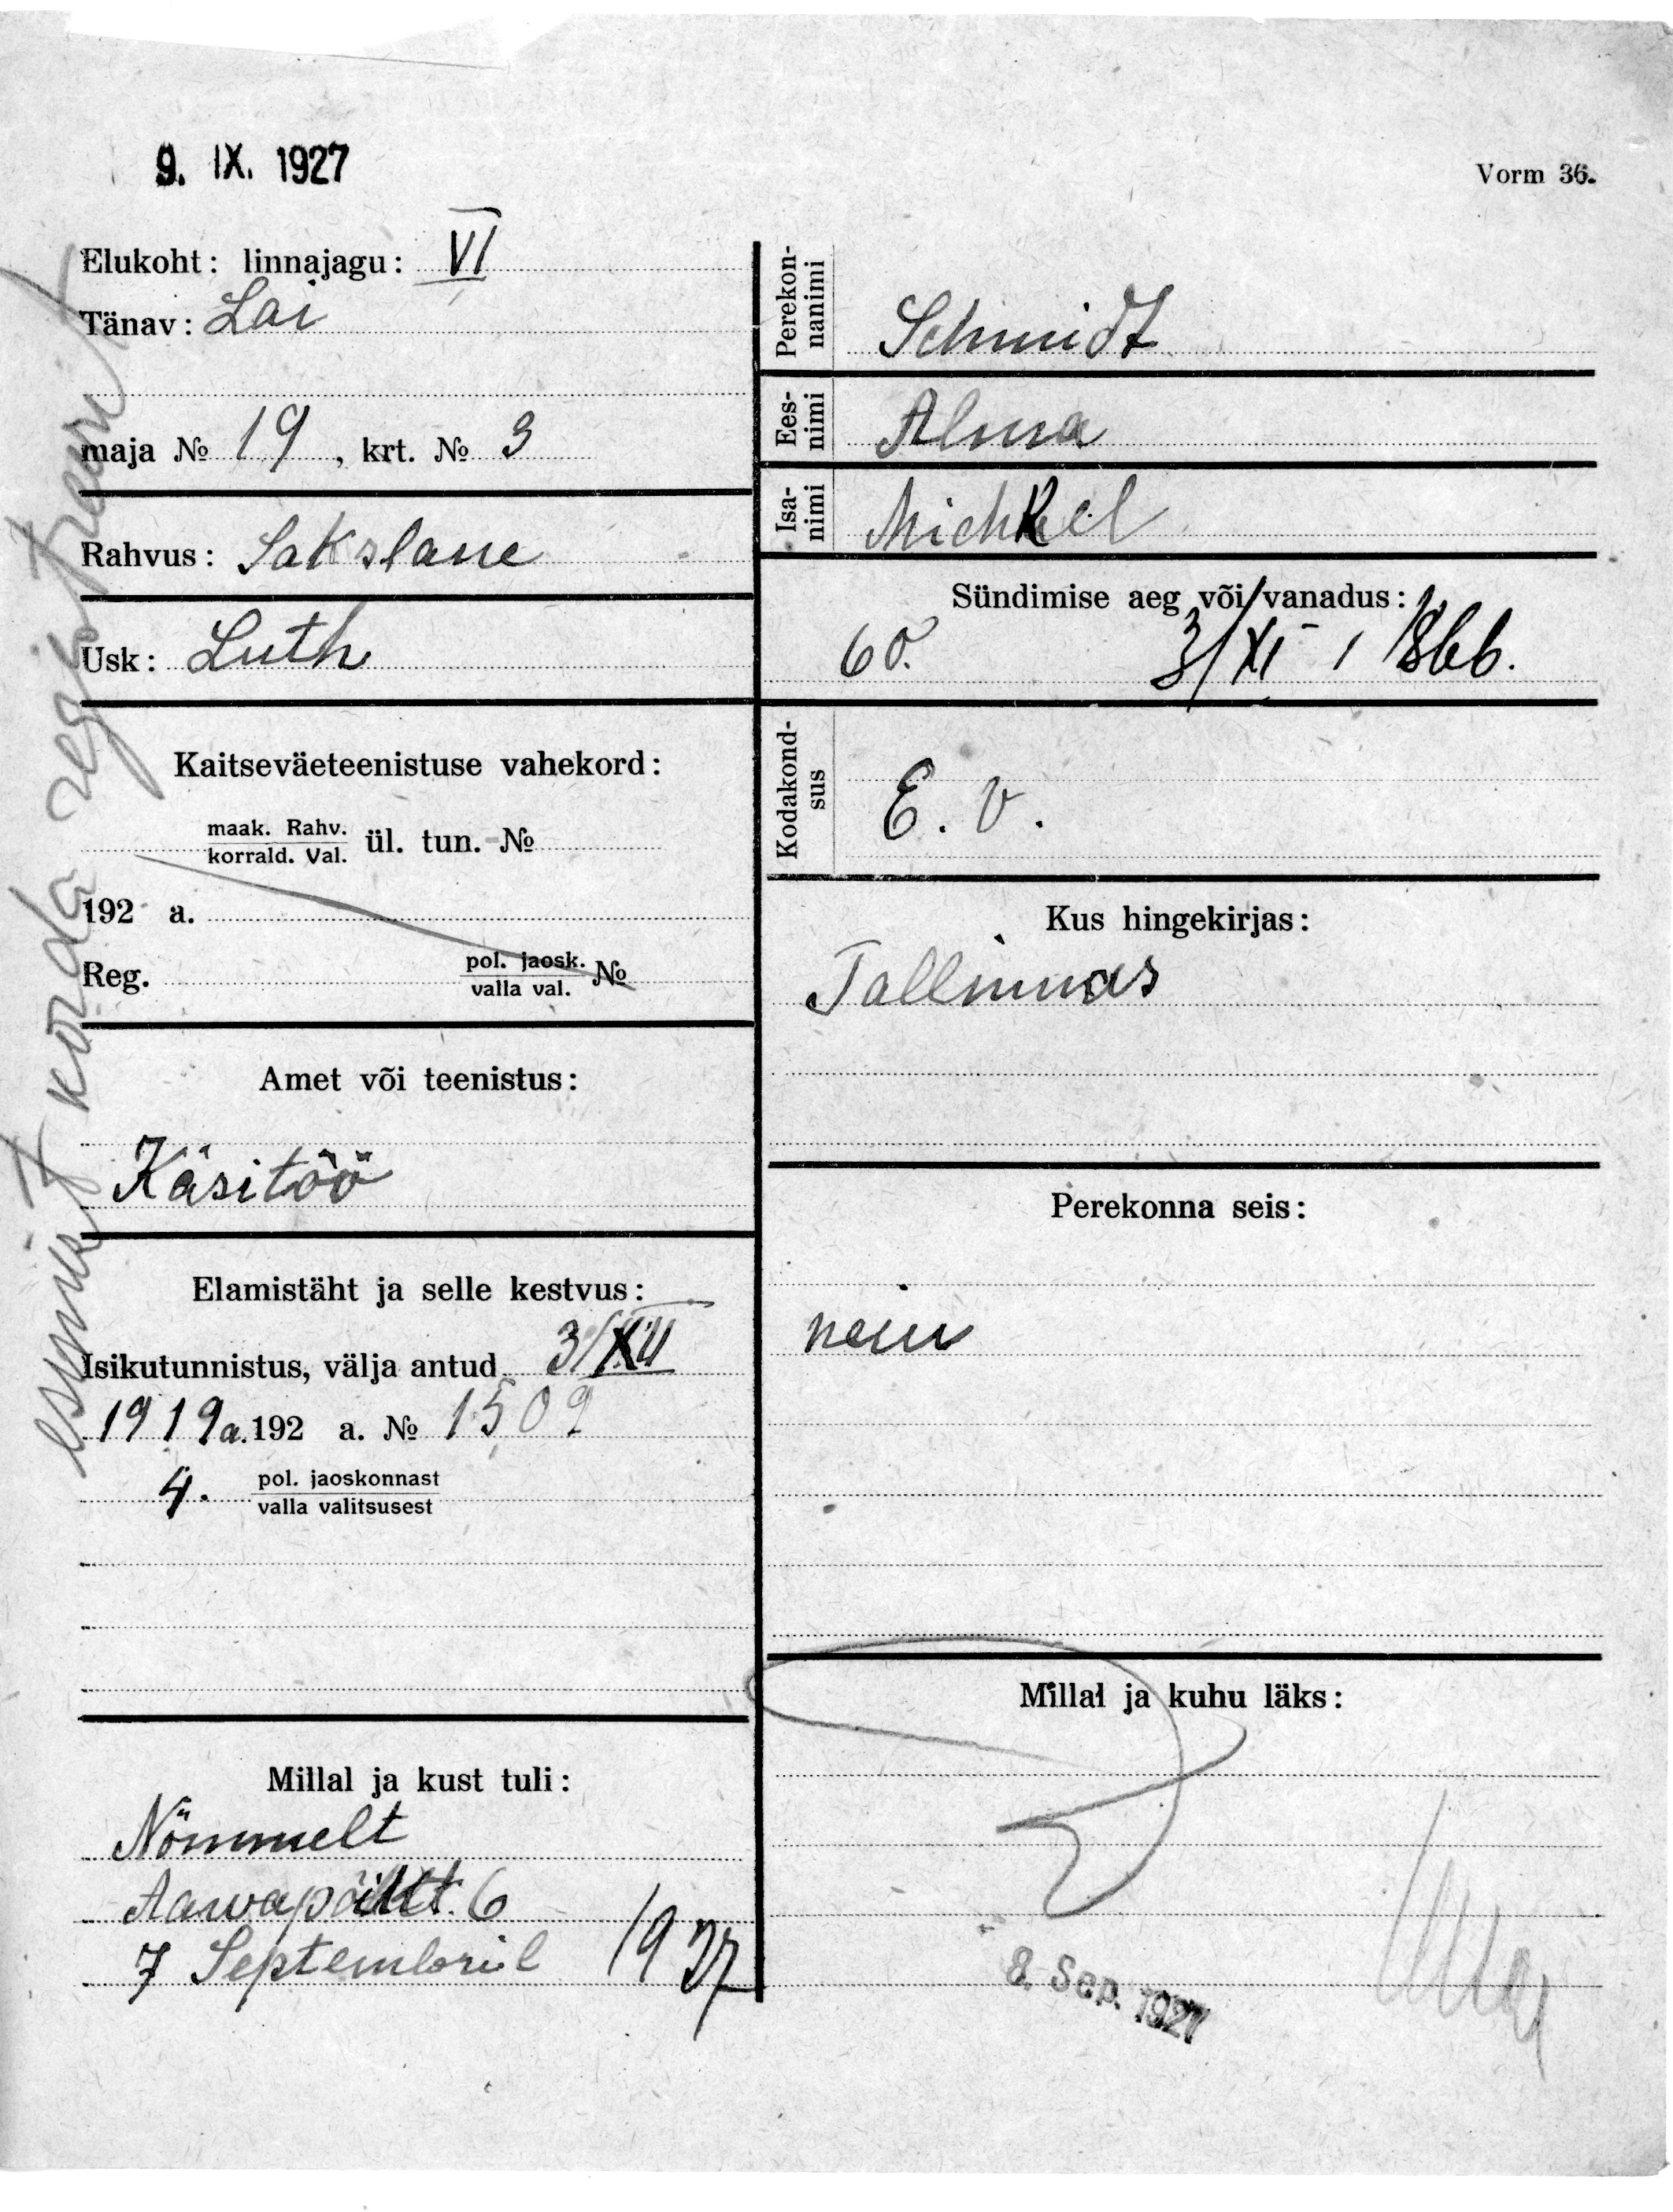 9. IX. 1927
Vorm 36.
Elukoht: linnajagu: VI
Tänav: Lai
maja № 19, krt. № 3
Rahvus: Sakslane
Usk: Luth
Kaitseväeteenistuse vahekord:
maak. Rahv.
korrald. Val. ül. tun. №
192 a.
Reg. pol. jaosk. №
valla val.
Amet või teenistus:
Käsitöö
Elamistäht ja selle kestvus:
Isikutunnistus, välja antud 3/XII
1919a. 192 a. № 1509
4. pol. jaoskonnast
valla valitsusest
Millal ja kust tuli:
Nõmmelt
6
7 Septembril 1927
esimist korda registreerit
Perekonnanimi
Schmidt
Eesnimi
Alma
Isanimi
Michkel
Sündimise aeg või vanadus:
60. 3/XI 1866.
Kodakondsus
E. V.
Kus hingekirjas:
Tallinnas
Perekonna seis:
nein
Millal ja kuhu läks:
8. Sep. 1927